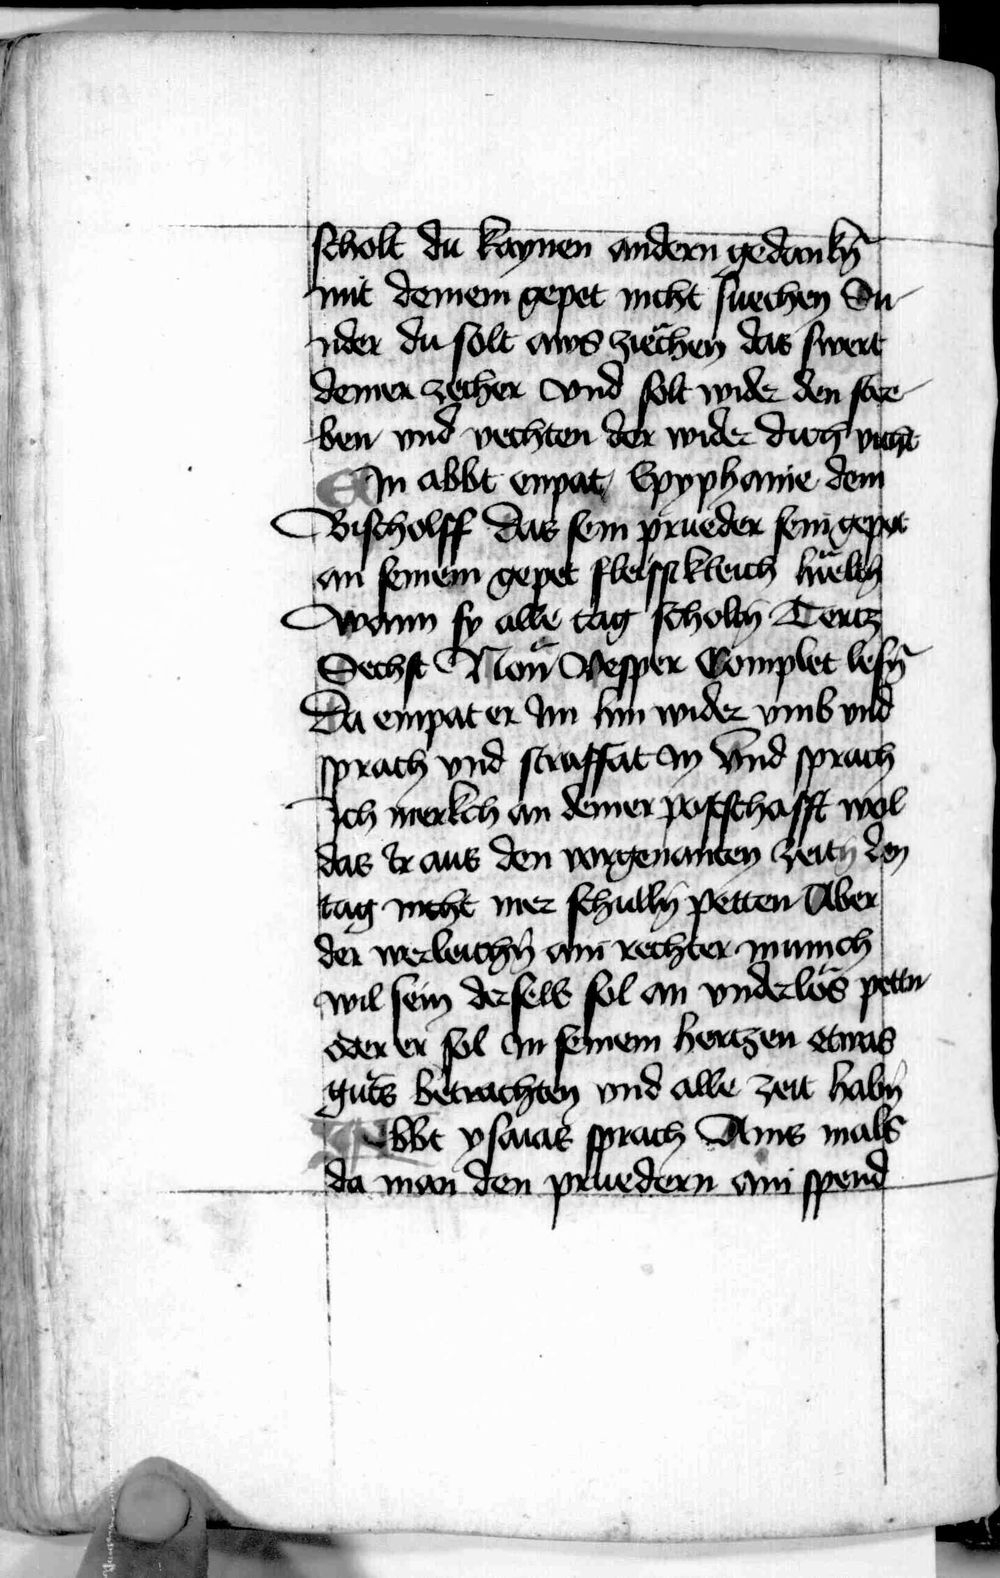 scholt du kaynen andern gedankn̄
mit deinem gepet nicht suechen Su-
nder du solt aws ziechen das swert
deiner zecher vnd solt wider den stre-
ben vnd vechten der wider dich vicht
Ein abbt enpat Epyphanie dem
Bischolff das sein prueder sein gepet
an seinem gepet fleissikleich hüeltn̄
Wann sy alle tag scholtn̄ Tertz
Sechst Non Vesper Complet lesn̄
Da empat er Im hin wider vmb vnd
sprach vnd straffat In vnd sprach
Ich merkch an deiner potschafft wol
das Ir aus den vorgenanten zeitn den
tag nicht mer schulln̄ petten Aber
der werleichn̄ ain rechter munich
wil sein derselb sol an vnderlos pettn
oder er sol In seinem hertzen etwas
guts betrachten vnd alle zeit habn̄
Abbt ysaias sprach Ains mals
da man den pruedern ain spend